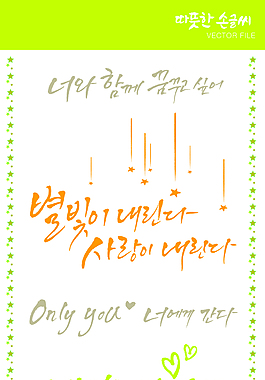 따뜻한 손글씨
VECTOR FILE
너와 함께 꿈꾸고 싶어
별빛이 내린다
사랑이 내린다
Only you♥ 너에게 간다